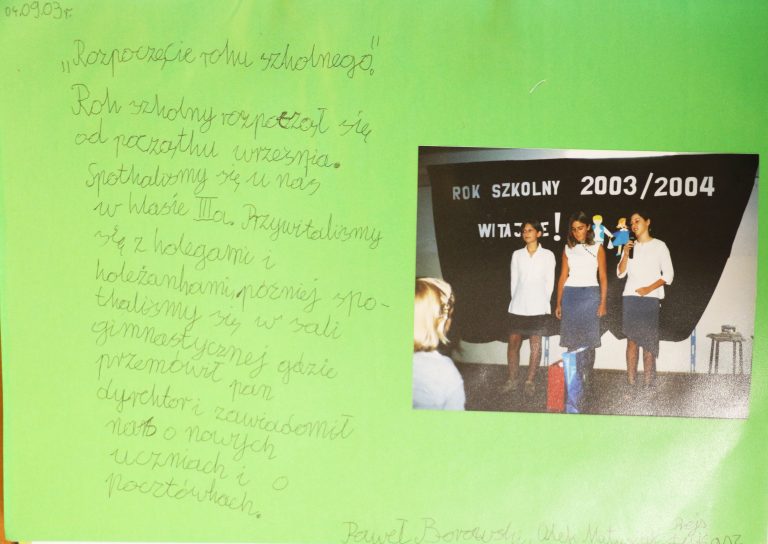 04.09.03r.
„Rozpoczęcie roku szkolnego."
Rok szkolny rozpoczął się
od początku września.
Spotkaliśmy się u nas
w klasie IIIa. Przywitaliśmy
się z kolegami i
koleżankami, później spo-
tkaliśmy się w sali
gimnastycznej gdzie
przemówił pan
dyrektor i zawiadomił
nas o nowych
uczniach i o
pocztówkach.
ROK SZKOLNY 2003/2004
WITAJCIE!
Paweł Borowski, Olek